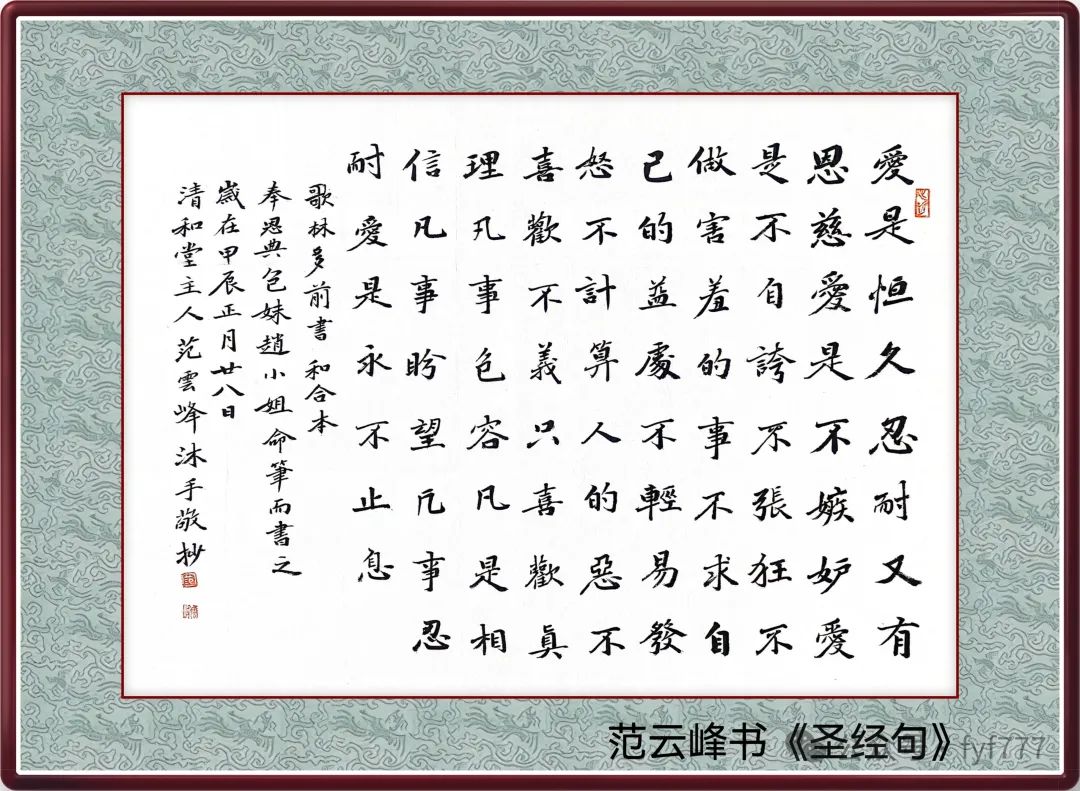 愛是恒久忍耐又有
恩慈愛是不嫉妒愛
是不自誇不張狂不
做害羞的事不求自
己的益處不輕易發
怒不計算人的惡不
喜歡不義只喜歡真
理凡事包容凡是相
信凡事盼望凡事忍
耐愛是永不止息
歌林多前書 和合本
奉恩典包妹趙小姐命筆而書之
歲在甲辰正月廿八日
清和堂主人范雲峰沐手敬抄
范云峰书《圣经句》
fyf777